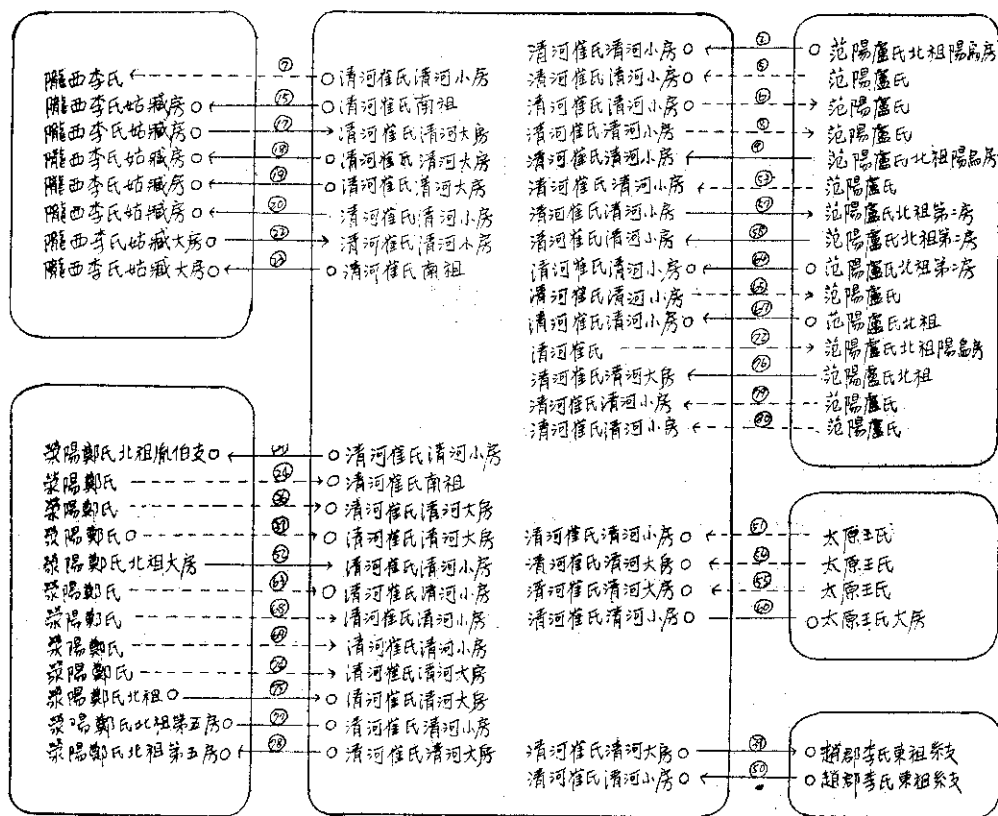 隴西李氏 ⑦ 清河崔氏清河小房
隴西李氏姑臧房 ⑮ 清河崔氏南祖
隴西李氏姑臧房 ⑰ 清河崔氏清河大房
隴西李氏姑臧房 ⑱ 清河崔氏清河大房
隴西李氏姑臧房 ⑲ 清河崔氏清河大房
隴西李氏姑臧房 ⑳ 清河崔氏清河小房
隴西李氏姑臧大房 清河崔氏清河小房
隴西李氏姑臧大房 清河崔氏南祖
滎陽鄭氏北祖胤伯支 清河崔氏清河小房
滎陽鄭氏 清河崔氏南祖
滎陽鄭氏 清河崔氏清河大房
滎陽鄭氏 清河崔氏清河大房
滎陽鄭氏北祖大房 清河崔氏清河小房
滎陽鄭氏 清河崔氏清河小房
滎陽鄭氏 清河崔氏清河小房
滎陽鄭氏 清河崔氏清河小房
滎陽鄭氏 清河崔氏清河大房
滎陽鄭氏北祖 清河崔氏清河大房
滎陽鄭氏北祖第五房 清河崔氏清河小房
滎陽鄭氏北祖第五房 清河崔氏清河大房
清河崔氏清河小房 范陽盧氏北祖陽烏房
清河崔氏清河小房 范陽盧氏
清河崔氏清河小房 ⑥ 范陽盧氏
清河崔氏清河小房 范陽盧氏
清河崔氏清河小房 范陽盧氏北祖陽烏房
清河崔氏清河小房 范陽盧氏
清河崔氏清河小房 范陽盧氏北祖第二房
清河崔氏清河小房 范陽盧氏北祖第二房
清河崔氏清河小房 范陽盧氏北祖第二房
清河崔氏清河小房 范陽盧氏
清河崔氏清河小房 范陽盧氏北祖
清河崔氏 范陽盧氏北祖陽烏房
清河崔氏清河大房 范陽盧氏北祖
清河崔氏清河小房 范陽盧氏
清河崔氏清河小房 范陽盧氏
清河崔氏清河小房 太原王氏
清河崔氏清河大房 太原王氏
清河崔氏清河大房 太原王氏
清河崔氏清河小房 太原王氏大房
清河崔氏清河大房 趙郡李氏東祖系支
清河崔氏清河小房 ㊿ 趙郡李氏東祖系支